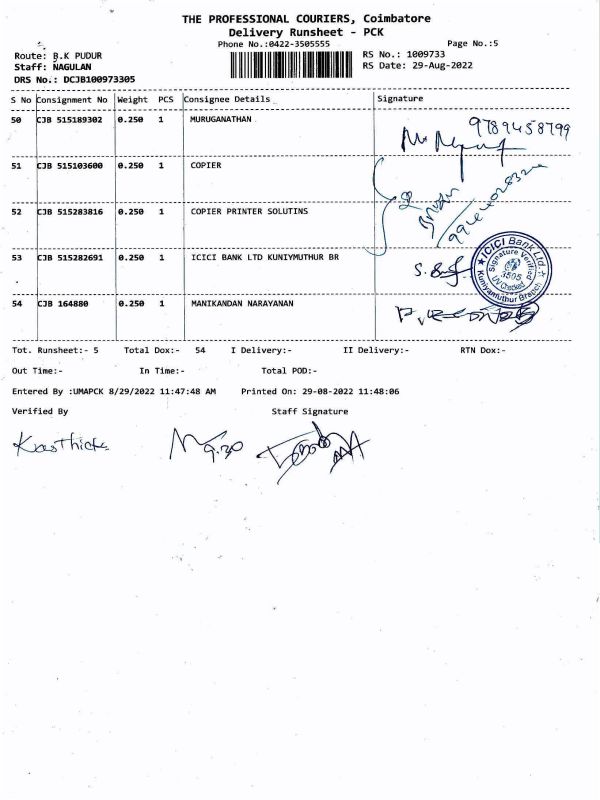 THE PROFESSIONAL COURIERS, Coimbatore
Delivery Runsheet - PCK
Phone No.:0422-3505555 Page No.:5
Route: B.K PUDUR RS No.: 1009733
Staff: NAGULAN RS Date: 29-Aug-2022
DRS No.: DCJB100973305
S No Consignment No Weight PCS Consignee Details Signature
50 CJB 515189302 0.250 1 MURUGANATHAN 9789458799
51 CJB 515103600 0.250 1 COPIER
52 CJB 515283816 0.250 1 COPIER PRINTER SOLUTINS
53 CJB 515282691 0.250 1 ICICI BANK LTD KUNIYMUTHUR BR
ICICI Bank Ltd.
Signature Verified
3505
UV Checked
Kuniyamuthur Branch
54 CJB 164880 0.250 1 MANIKANDAN NARAYANAN
Tot. Runsheet:- 5 Total Dox:- 54 I Delivery:- II Delivery:- RTN Dox:-
Out Time:- In Time:- Total POD:-
Entered By :UMAPCK 8/29/2022 11:47:48 AM Printed On: 29-08-2022 11:48:06
Verified By Staff Signature
9.30